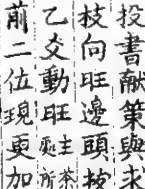 投書献策與求
枝向旺邊頭按
乙爻動旺處主茶所
前二位現更加